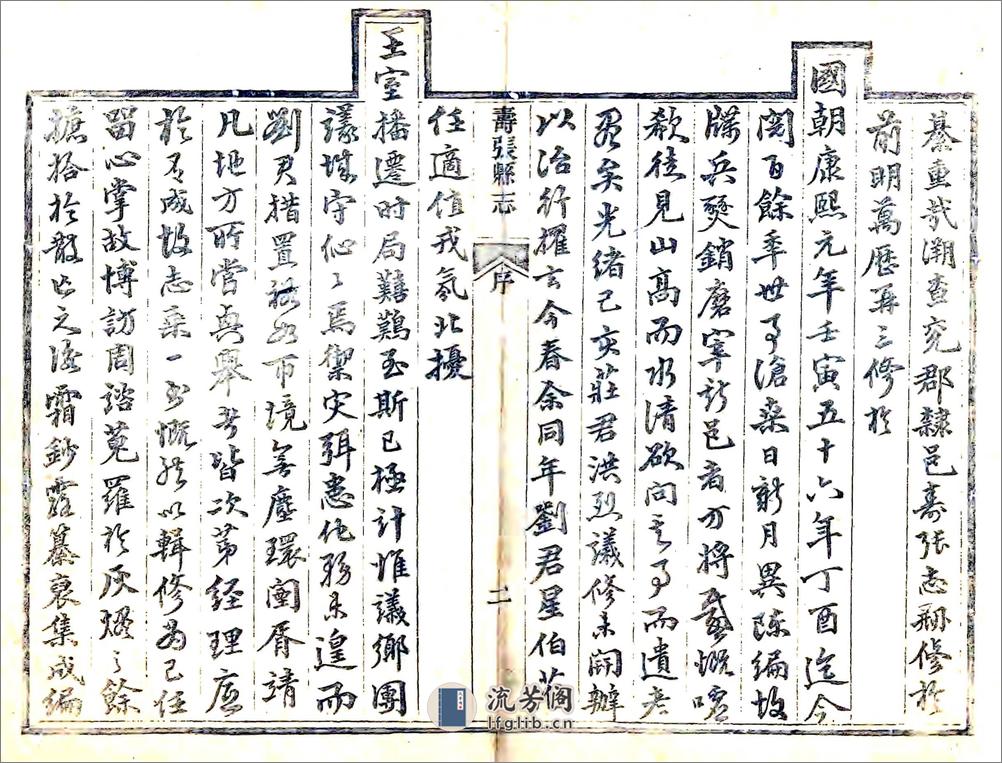 綦重哉溯查兖郡隸邑壽張志剏修於
前明萬歷再三修於
國朝康熙元年壬寅五十六年丁酉迄今
閱百餘年世事滄桑日新月異陳編故
牒兵燹銷磨宰斯邑者方將感慨噓
欷徒見山高而水清欲問其事而遺老
盡矣光緒己亥莊君洪烈議修未開辦
以治行擢去今春余同年劉君星伯蒞
壽張縣志
序
二
任適值戎氛北擾
王室播遷時局艱難至斯已極計惟議鄉團
議城守仆仆焉禦灾弭患他務未遑而
劉君措置裕如市境無塵環闤胥靖
凡地方所當興舉者皆次第經理應
於舊成故志乘一書慨然以輯修為己任
留心掌故博訪周諮蒐羅於灰燼之餘
摭拾於散亡之後霜鈔露纂裒集成編
流芳閣
lfglib.cn